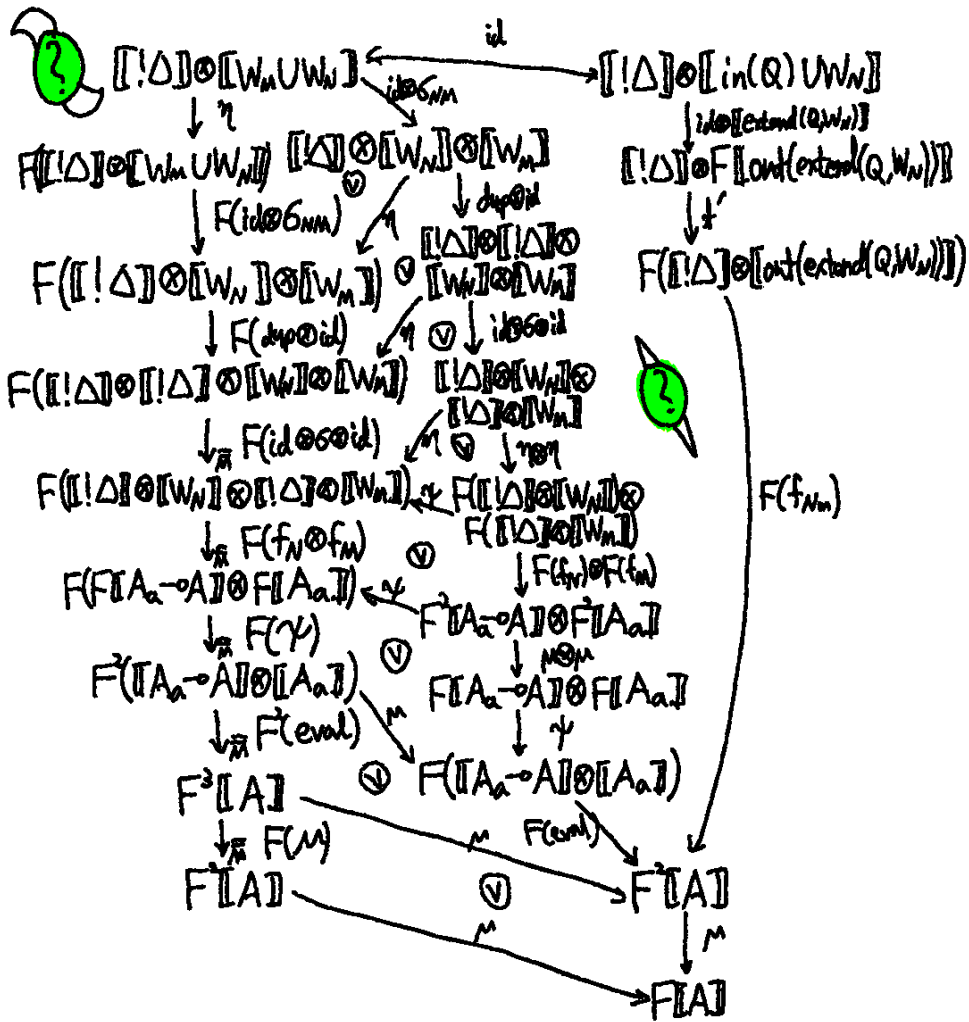 id
? [[!Δ]]⊗[[W_M∪W_N]] [[!Δ]]⊗[[in(Q)∪W_N]]
η id⊗σ_NM id⊗[[extend(Q,W_N)]]
F([[!Δ]]⊗[[W_M∪W_N]]) [[!Δ]]⊗[[W_N]]⊗[[W_M]] [[!Δ]]⊗F[[out(extend(Q,W_N))]]
F(id⊗σ_NM) ⓥ η dup⊗id t'
[[!Δ]]⊗[[!Δ]]⊗
F([[!Δ]]⊗[[W_N]]⊗[[W_M]]) ⓥ [[W_N]]⊗[[W_M]] F([[!Δ]]⊗[[out(extend(Q,W_N))]])
F(dup⊗id) η ⓥ id⊗σ⊗id
F([[!Δ]]⊗[[!Δ]]⊗[[W_N]]⊗[[W_M]]) [[!Δ]]⊗[[W_N]]⊗ ?
[[!Δ]]⊗[[W_M]]
F(id⊗σ⊗id) η ⓥ η⊗η
F([[!Δ]]⊗[[W_N]]⊗[[!Δ]]⊗[[W_M]]) ψ F([[!Δ]]⊗[[W_N]])⊗ F(f_Nm)
F([[!Δ]]⊗[[W_M]])
F(f_N⊗f_M) ⓥ F(f_N)⊗F(f_M)
F(F[[A_a⊸A]]⊗F[[A_a]]) ψ F²[[A_a⊸A]]⊗F²[[A_a]]
F(ψ) ⓥ μ⊗μ
F²([[A_a⊸A]]⊗[[A_a]]) F[[A_a⊸A]]⊗F[[A_a]]
F²(eval) μ ψ
ⓥ F([[A_a⊸A]]⊗[[A_a]])
F³[[A]] F(eval)
F(μ) μ
F²[[A]] ⓥ F²[[A]]
μ μ
F[[A]]